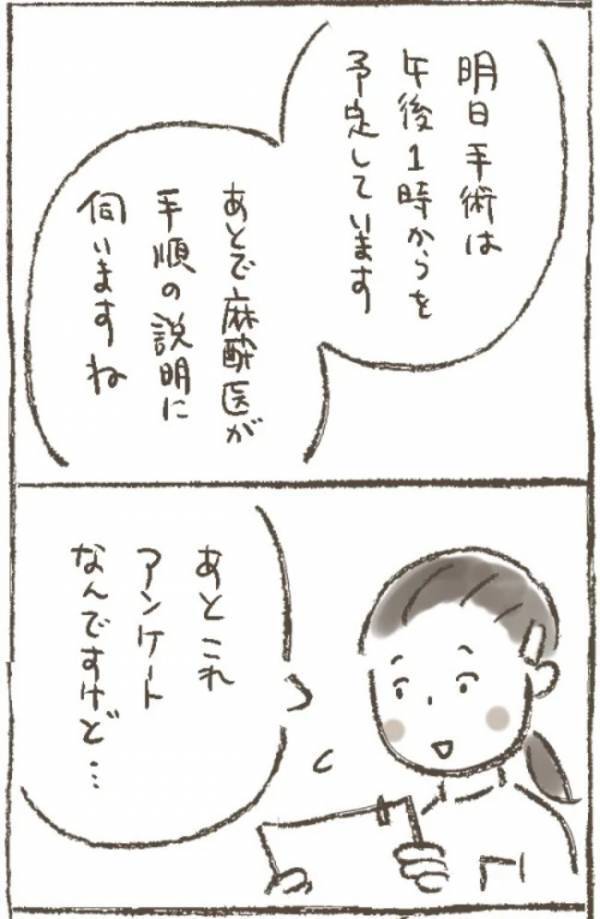 明日手術は
午後1時からを
予定しています
あとで麻酔医が
手順の説明に
伺いますね
あとこれ
アンケート
なんですけど…